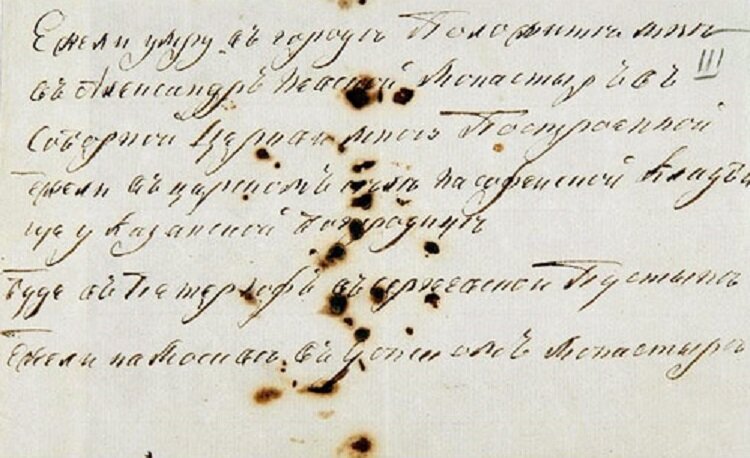 Ежели умру въ городѣ Положить мнѣ
III
въ Александрѣ Невской Монастырь въ
Соборной Церкви мною Построенной
Ежели въ царскомъ селѣ на софейской Кладъ
ще у Казанской Богородицѣ
Буде въ Петергофѣ въ сергеевской Пустынѣ
Ежели на Москвѣ въ Донскомъ Монастырѣ